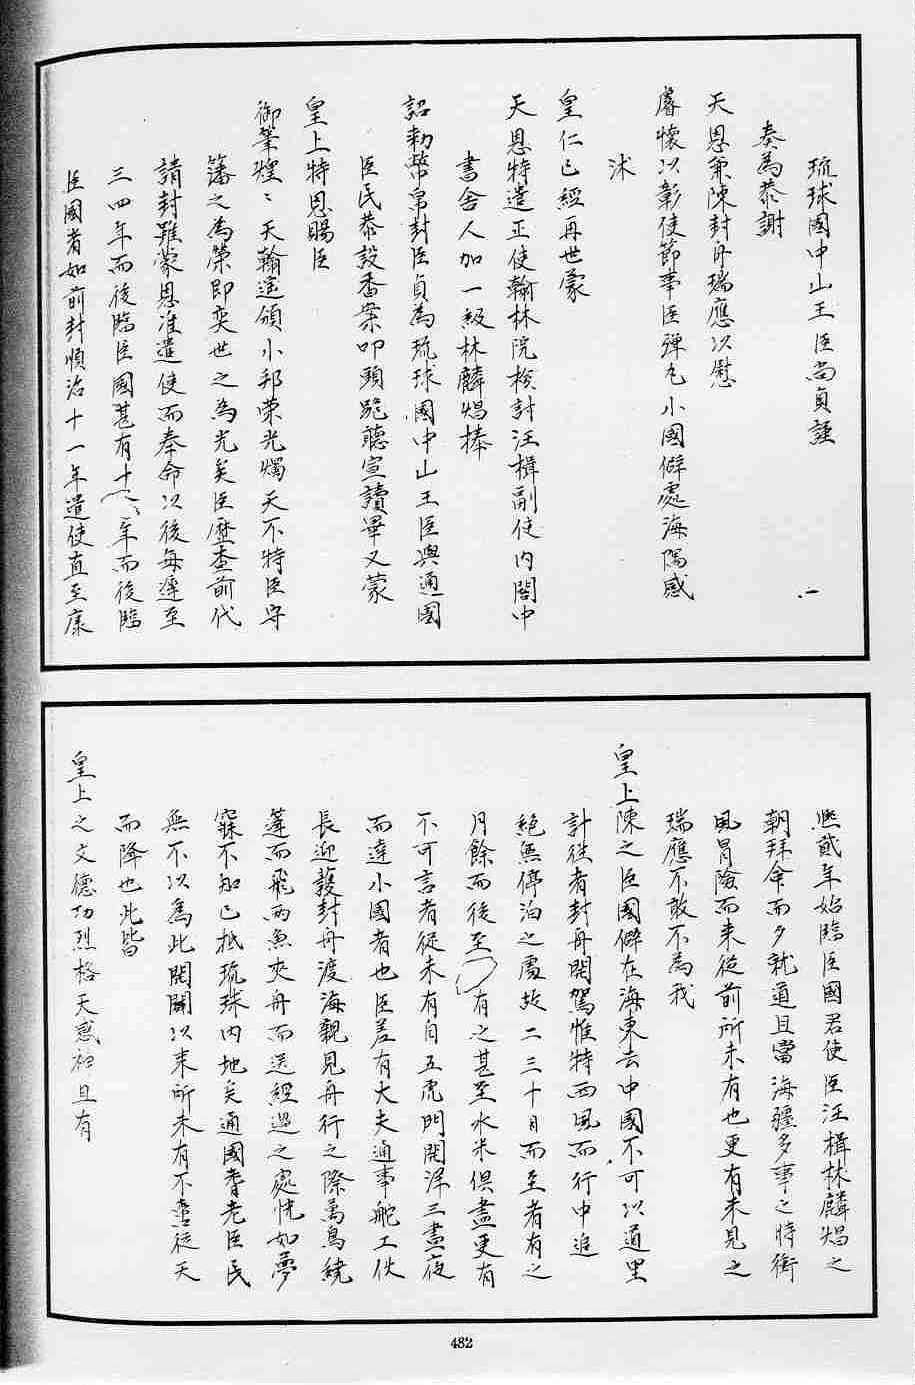 琉球國中山王臣尚貞謹
奏為恭謝
天恩兼陳封舟瑞應以慰
睿懷以彰使節事臣彈丸小國僻處海隅感
沐
皇仁已經再世蒙
天恩特遣正使翰林院檢討汪楫副使內閣中
書舍人加一級林麟焻捧
詔勅幣帛封臣貞為琉球國中山王臣與通國
臣民恭設香案叩頭跪聽宣讀畢又蒙
皇上特恩賜臣
御筆煌〻天翰遙頒小邦榮光燭天不特臣守
藩之為榮即奕世之為光矣臣歷查前代
請封雖蒙恩准遣使而奉命以後每遲至
三四年而後臨臣國甚有十八、年而後臨
臣國者如前封順治十一年遣使直至康
一
熙貳年始臨臣國君使臣汪楫林麟焻之
朝拜命而夕就道且當海疆多事之時衝
風冒險而来從前所未有也更有未見之
瑞應不敢不為我
皇上陳之臣國僻在海東去中國不可以道里
計徃者封舟開駕惟特西風而行中途
絕無停泊之處故二三十日而至者有之
月餘而後至()有之甚至水米俱盡更有
不可言者從未有自五虎門開洋三晝夜
而達小國者也臣差有大夫通事舵工伙
長迎護封舟渡海親見舟行之際萬鳥繞
篷而飛兩魚夾舟而送經過之處恍如夢
寐不知已抵琉球內地矣通國耆老臣民
無不以為此開闢以来所未有不啻從天
而降也此皆
皇上之文德功烈格天感神且有
482